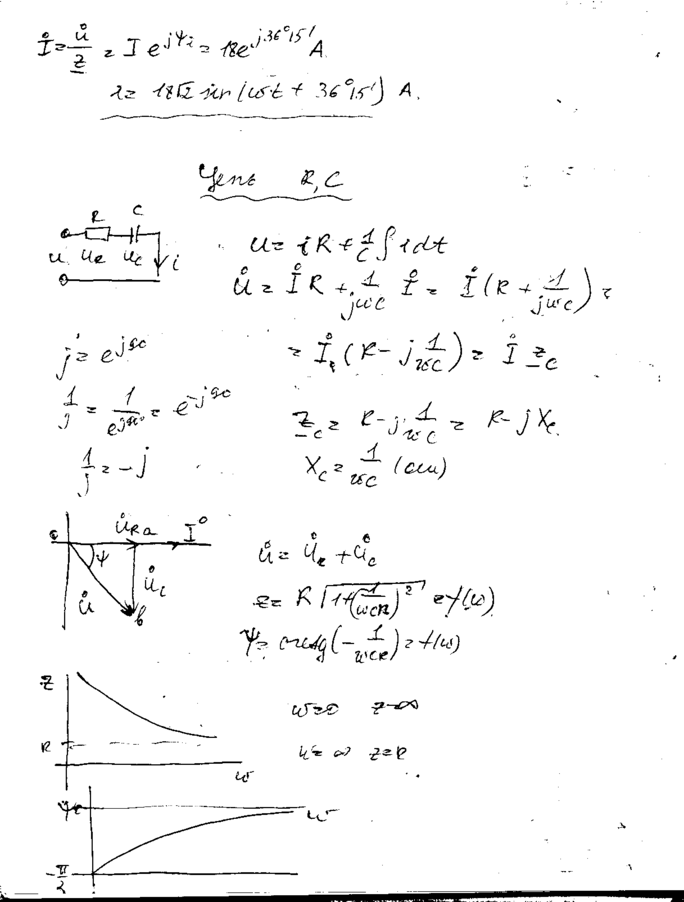 İ = U̇/Z = I e^{jΨi} = 18e^{j36°15'} A
i = 18√2 sin(ωt + 36°15') A.
Цепь R, C
R C
u uR uc i
u = iR + 1/C ∫ i dt
U̇ = İ R + 1/jωC İ = İ (R + 1/jωC) =
j = e^{j90}
= İ (R - j 1/ωC) = İ Z_C
1/j = 1/e^{j90°} = e^{-j90}
Z_C = R - j 1/ωC = R - j X_C.
1/j = -j
X_C = 1/ωC (ом)
o U̇R a İ
ψ U̇c
U̇ b
U̇ = U̇R + U̇c
z = R √(1+(1/ωCR)²) = f(ω)
Ψ = arctg(-1/ωCR) = f(ω)
Z
ω=0 z=∞
R
ω=∞ z=R
ω
Ψ ω
-π/2